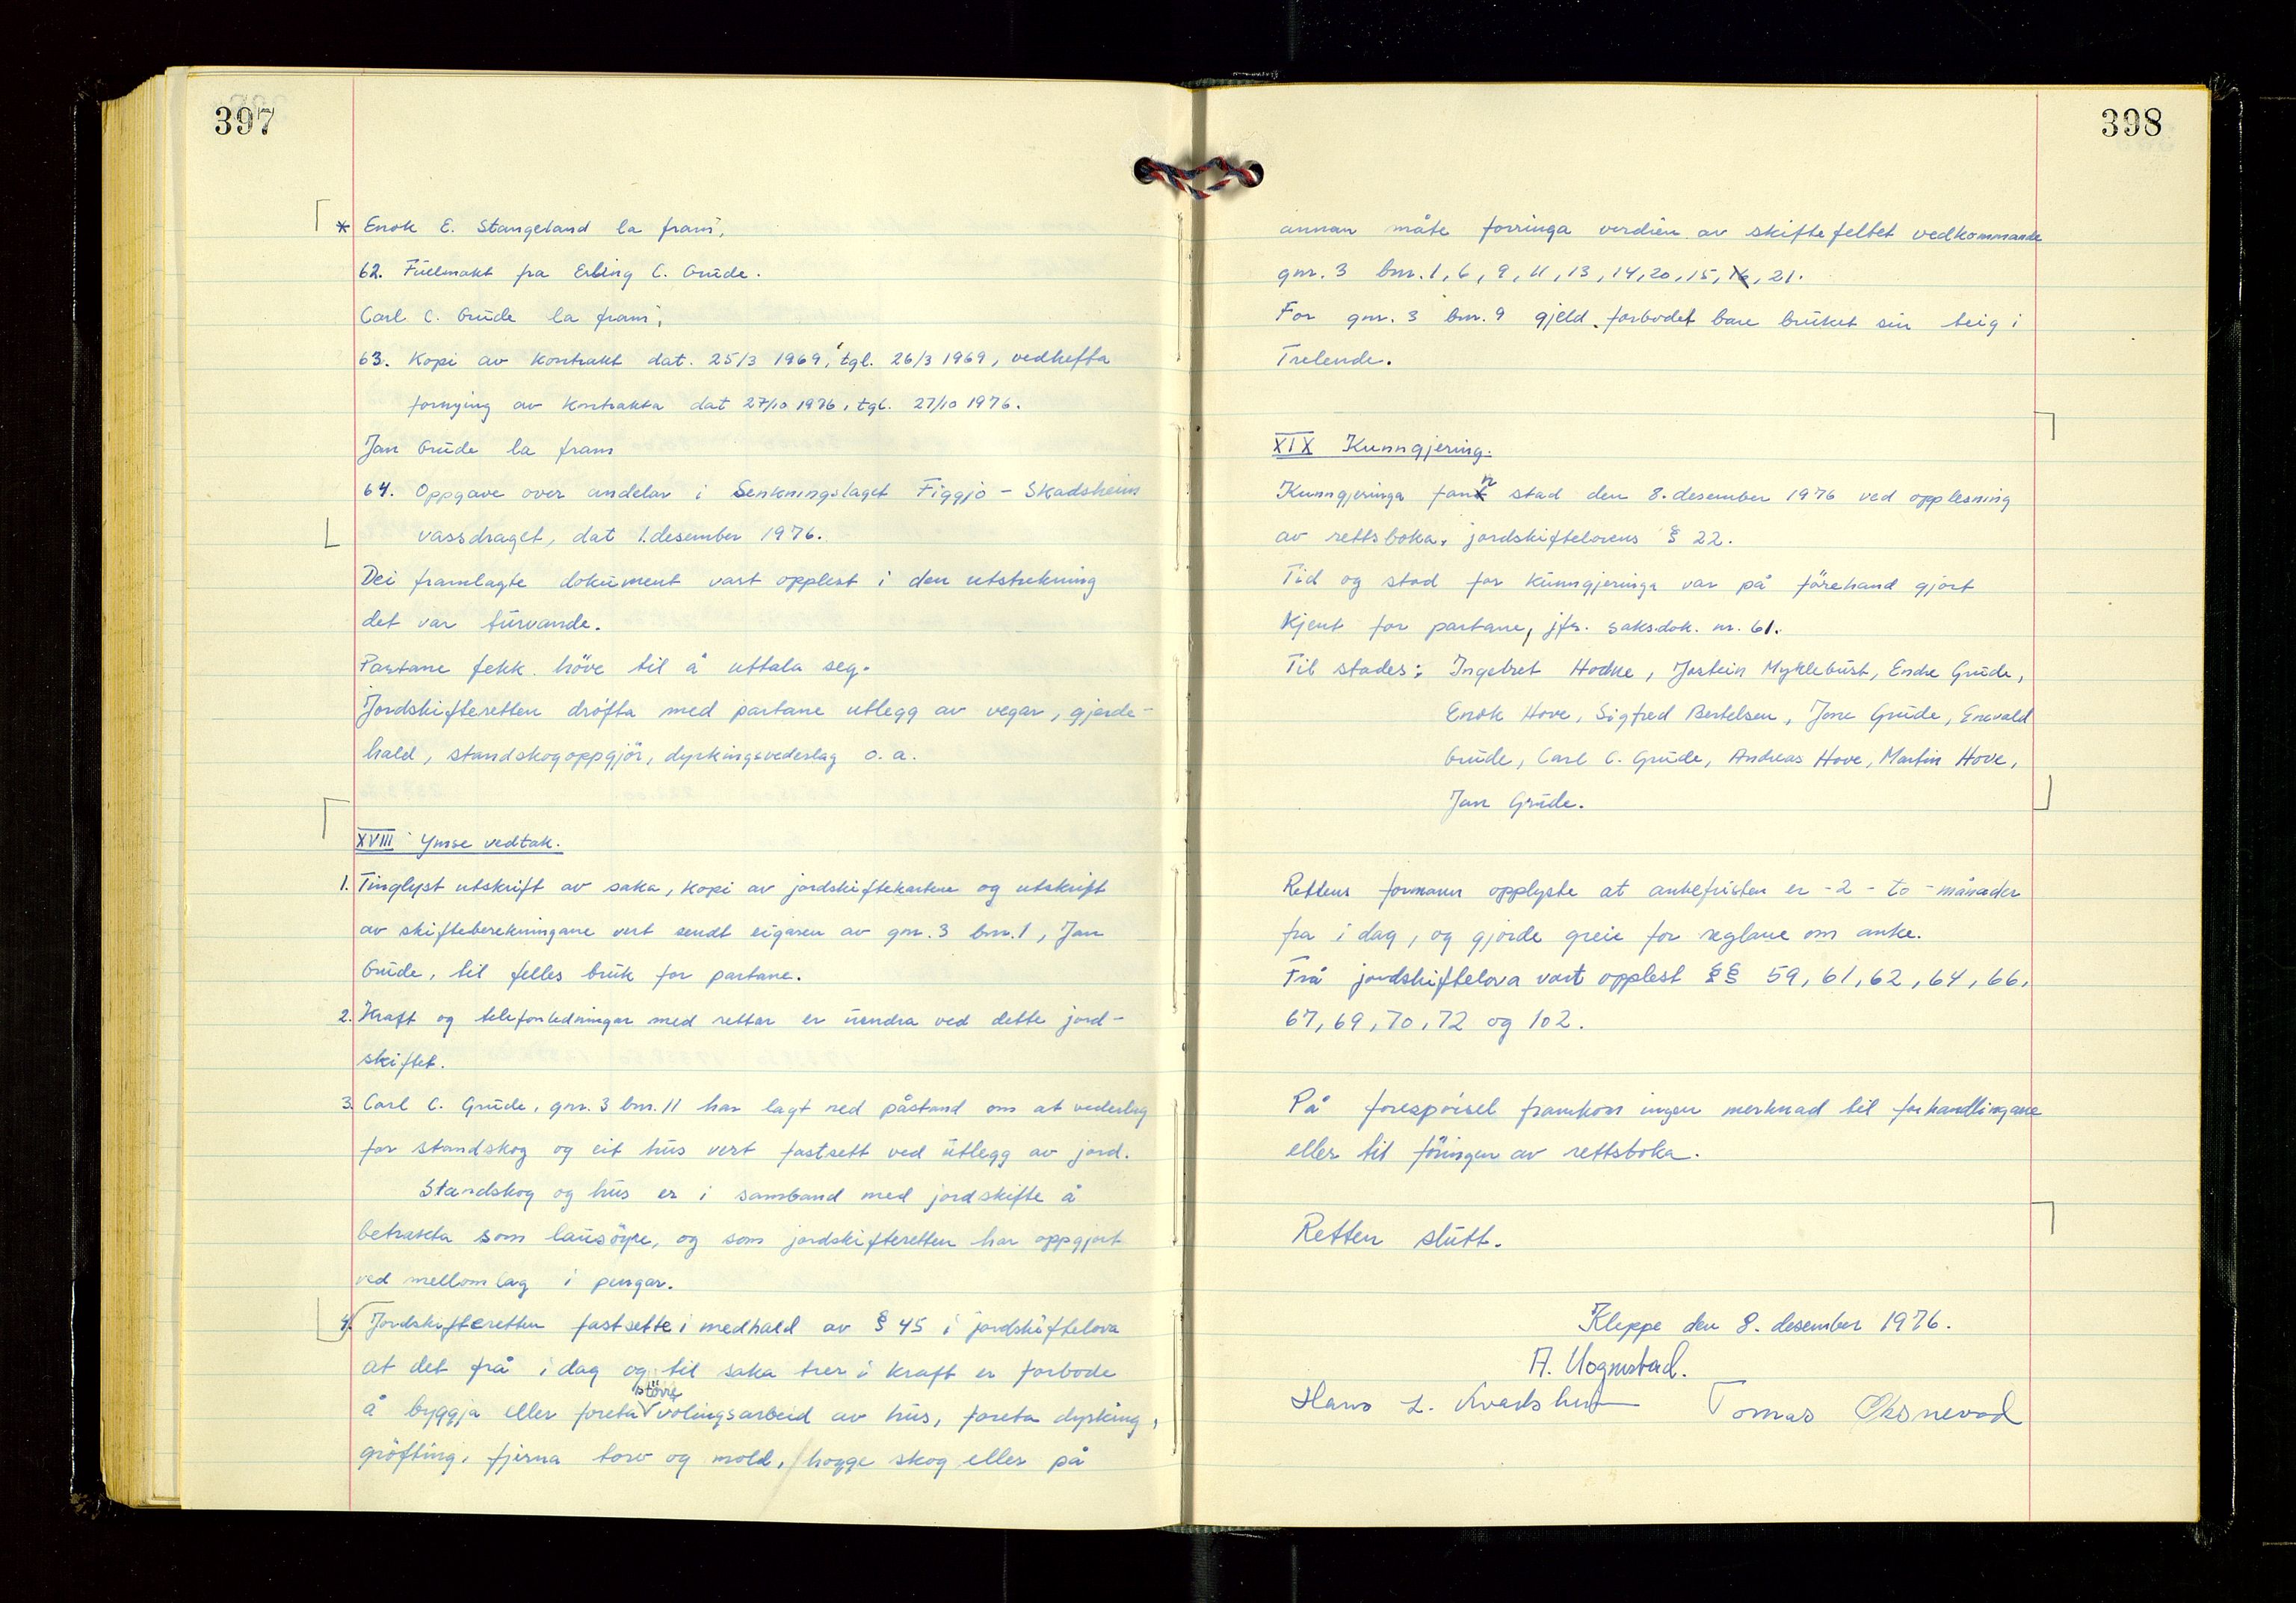 397
* Enok E. Stangeland la fram;
62. Fullmakt fra Erling C. Grude.
Carl C. Grude la fram;
63. Kopi av kontrakt dat. 25/3 1969, tgl. 26/3 1969, vedhefta
fornying av kontrakta dat 27/10 1976, tgl. 27/10 1976.
Jan Grude la fram
64. Oppgave over andelar i Senkningslaget Figgjo - Skadsheim
vassdraget, dat 1. desember 1976.
Dei framlagte dokument vart opplest i den utstrekning
det var turvande.
Partane fekk höve til å uttala seg.
Jordskifteretten dröfta med partane utlegg av vegar, gjerde-
hald, standskogoppgjör, dyrkingsvederlag o. a.
XVIII Ymse vedtak.
1. Tinglyst utskrift av saka, kopi av jordskiftekartene og utskrift
av skifteberekningane vert sendt eigaren av gnr. 3 bnr. 1, Jan
Grude, til felles bruk for partane.
2. Kraft og telefonledningar med rettar er uendra ved dette jord-
skiftet.
3. Carl C. Grude, gnr. 3 bnr. 11 har lagt ned påstand om at vederlag
for standskog og eit hus vert fastsett ved utlegg av jord.
Standskog og hus er i samband med jordskifte å
betrakta som lausöyre, og som jordskifteretten har oppgjort
ved mellomlag i pengar.
4. Jordskifteretten fastsette i medhald av § 45 i jordskiftelova
at det frå i dag og til saka trer i kraft er forbode
å byggja eller foreta större volingsarbeid av hus, foreta dyrking,
gröfting, fjerna torv og mold, hogge skog eller på
398
annan måte forringa verdien av skiftefeltet vedkommande
gnr. 3 bnr. 1, 6, 9, 11, 13, 14, 20, 15, 16, 21.
For gnr. 3 bnr. 9 gjeld forbodet bare bruket sin teig i
Trelende.
XIX Kunngjering.
Kunngjeringa fann stad den 8. desember 1976 ved opplesning
av rettsboka, jordskiftelovens § 22.
Tid og stad for kunngjeringa var på förehand gjort
kjent for partane, jfr. saks.dok. nr. 61.
Til stades: Ingebret Hodne, Jostein Myklebust, Endre Grude,
Enok Hove, Sigfred Bertelsen, Jone Grude, Enevald
Grude, Carl C. Grude, Andreas Hove, Martin Hove,
Jan Grude.
Rettens formann opplyste at ankefristen er - 2 - to - månader
fra i dag, og gjorde greie for reglane om anke.
Frå jordskiftelova vart opplest §§ 59, 61, 62, 64, 66,
67, 69, 70, 72 og 102.
På forespörsel framkom ingen merknad til forhandlingane
eller til föringen av rettsboka.
Retten slutt.
Kleppe den 8. desember 1976.
A.
Hans L. Tomas Oksnevad